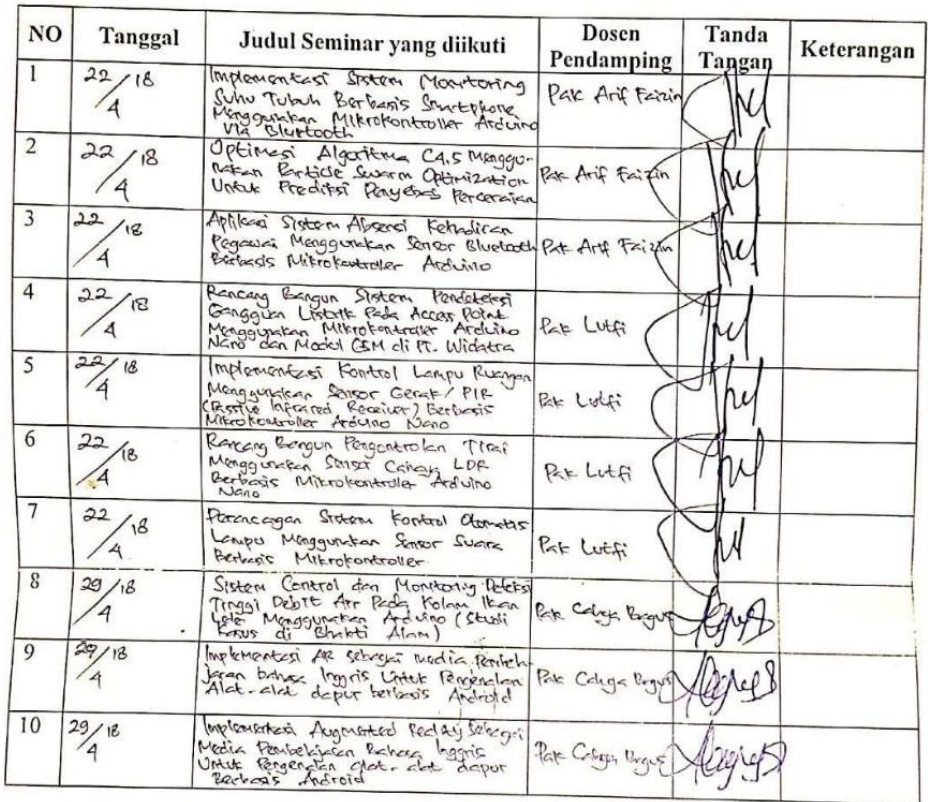 NO Tanggal Judul Seminar yang diikuti Dosen Pendamping Tanda Tangan Keterangan
1 22/18 4 Implementasi Sistem Monitoring
Suhu Tubuh Berbasis Smartphone
Menggunakan Mikrokontroller Arduino
Via Bluetooth
Pak Arif Faizin
2 22/18 4 Optimasi Algoritma C4.5 Menggu-
nakan Particle Swarm Optimization
Untuk Prediksi Penyebab Perceraian
Pak Arif Faizin
3 22/18 4 Aplikasi Sistem Absensi Kehadiran
Pegawai Menggunakan Sensor Bluetooth
Berbasis Mikrokontroller Arduino
Pak Arif Faizin
4 22/18 4 Rancang Bangun Sistem Pendeteksi
Gangguan Listrik Pada Access Point
Menggunakan Mikrokontroller Arduino
Nano dan Modul GSM di PT. Widatra
Pak Lutfi
5 22/18 4 Implementasi Kontrol Lampu Ruangan
Menggunakan Sensor Gerak / PIR
(Passive Infrared Receiver) Berbasis
Mikrokontroller Arduino Nano
Pak Lutfi
6 22/18 4 Rancang Bangun Pengontrolan Tirai
Menggunakan Sensor Cahaya LDR
Berbasis Mikrokontroller Arduino
Nano
Pak Lutfi
7 22/18 4 Perancagan Sistem Kontrol Otomatis
Lampu Menggunakan Sensor Suara
Berbasis Mikrokontroller
Pak Lutfi
8 29/18 4 Sistem Control dan Monitoring Deteksi
Tinggi Debit Air Pada Kolam Ikan
Lele Menggunakan Arduino (Studi
Kasus di Bhakti Alam)
Pak Cahya Bagus
9 29/18 4 Implementasi AR sebagai media Pembela-
jaran bahasa Inggris Untuk Pengenalan
Alat-alat dapur berbasis Android
Pak Cahya Bagus
10 29/18 4 Implementasi Augmented Reality Sebagai
Media Pembelajaran Bahasa Inggris
Untuk Pengenalan alat-alat dapur
Berbasis Android
Pak Cahya Bagus